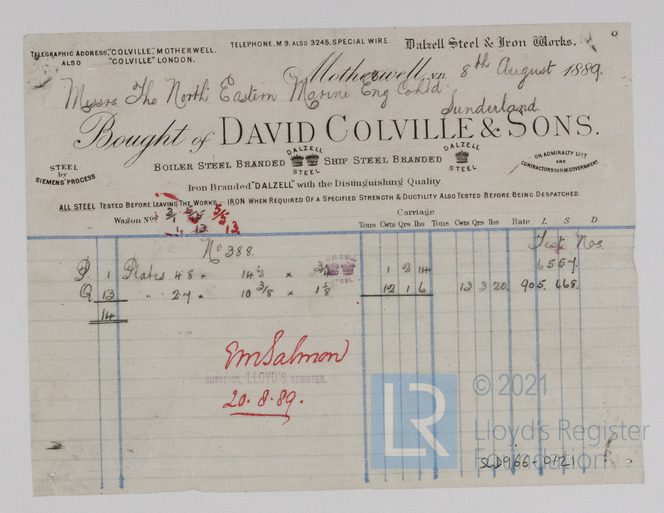 TELEGRAPHIC ADDRESS, "COLVILLE", MOTHERWELL.
ALSO "COLVILLE" LONDON.
TELEPHONE, M 9. ALSO 3245, SPECIAL WIRE.
Dalzell Steel & Iron Works.
Motherwell, N.B. 8th August 1889.
Messrs The North Eastern Marine Eng Co Ltd
Sunderland.
Bought of DAVID COLVILLE & SONS.
STEEL by SIEMENS' PROCESS
BOILER STEEL BRANDED DALZELL STEEL SHIP STEEL BRANDED DALZELL STEEL
ON ADMIRALTY LIST AND CONTRACTORS TO H.M. GOVERNMENT
Iron Branded "DALZELL" with the Distinguishing Quality
ALL STEEL TESTED BEFORE LEAVING THE WORKS. IRON WHEN REQUIRED OF A SPECIFIED STRENGTH & DUCTILITY ALSO TESTED BEFORE BEING DESPATCHED.
Wagon Nos
13. 13.
Carriage
Tons Cwts Qrs lbs Tons Cwts Qrs lbs Rate L S D
No 388. Test Nos.
P. 1 Plates 48 × 14 × 1 2 14 6557.
DALZELL STEEL
Q 13 " 27 × 10 3/8 × 1 12 1 6 13 3 20. 905. 668.
14
E M Salmon
SURVEYOR, LLOYD'S REGISTER.
20.8.89.
LR
© 2021
Lloyd's Register
Foundation
SLD966-0721